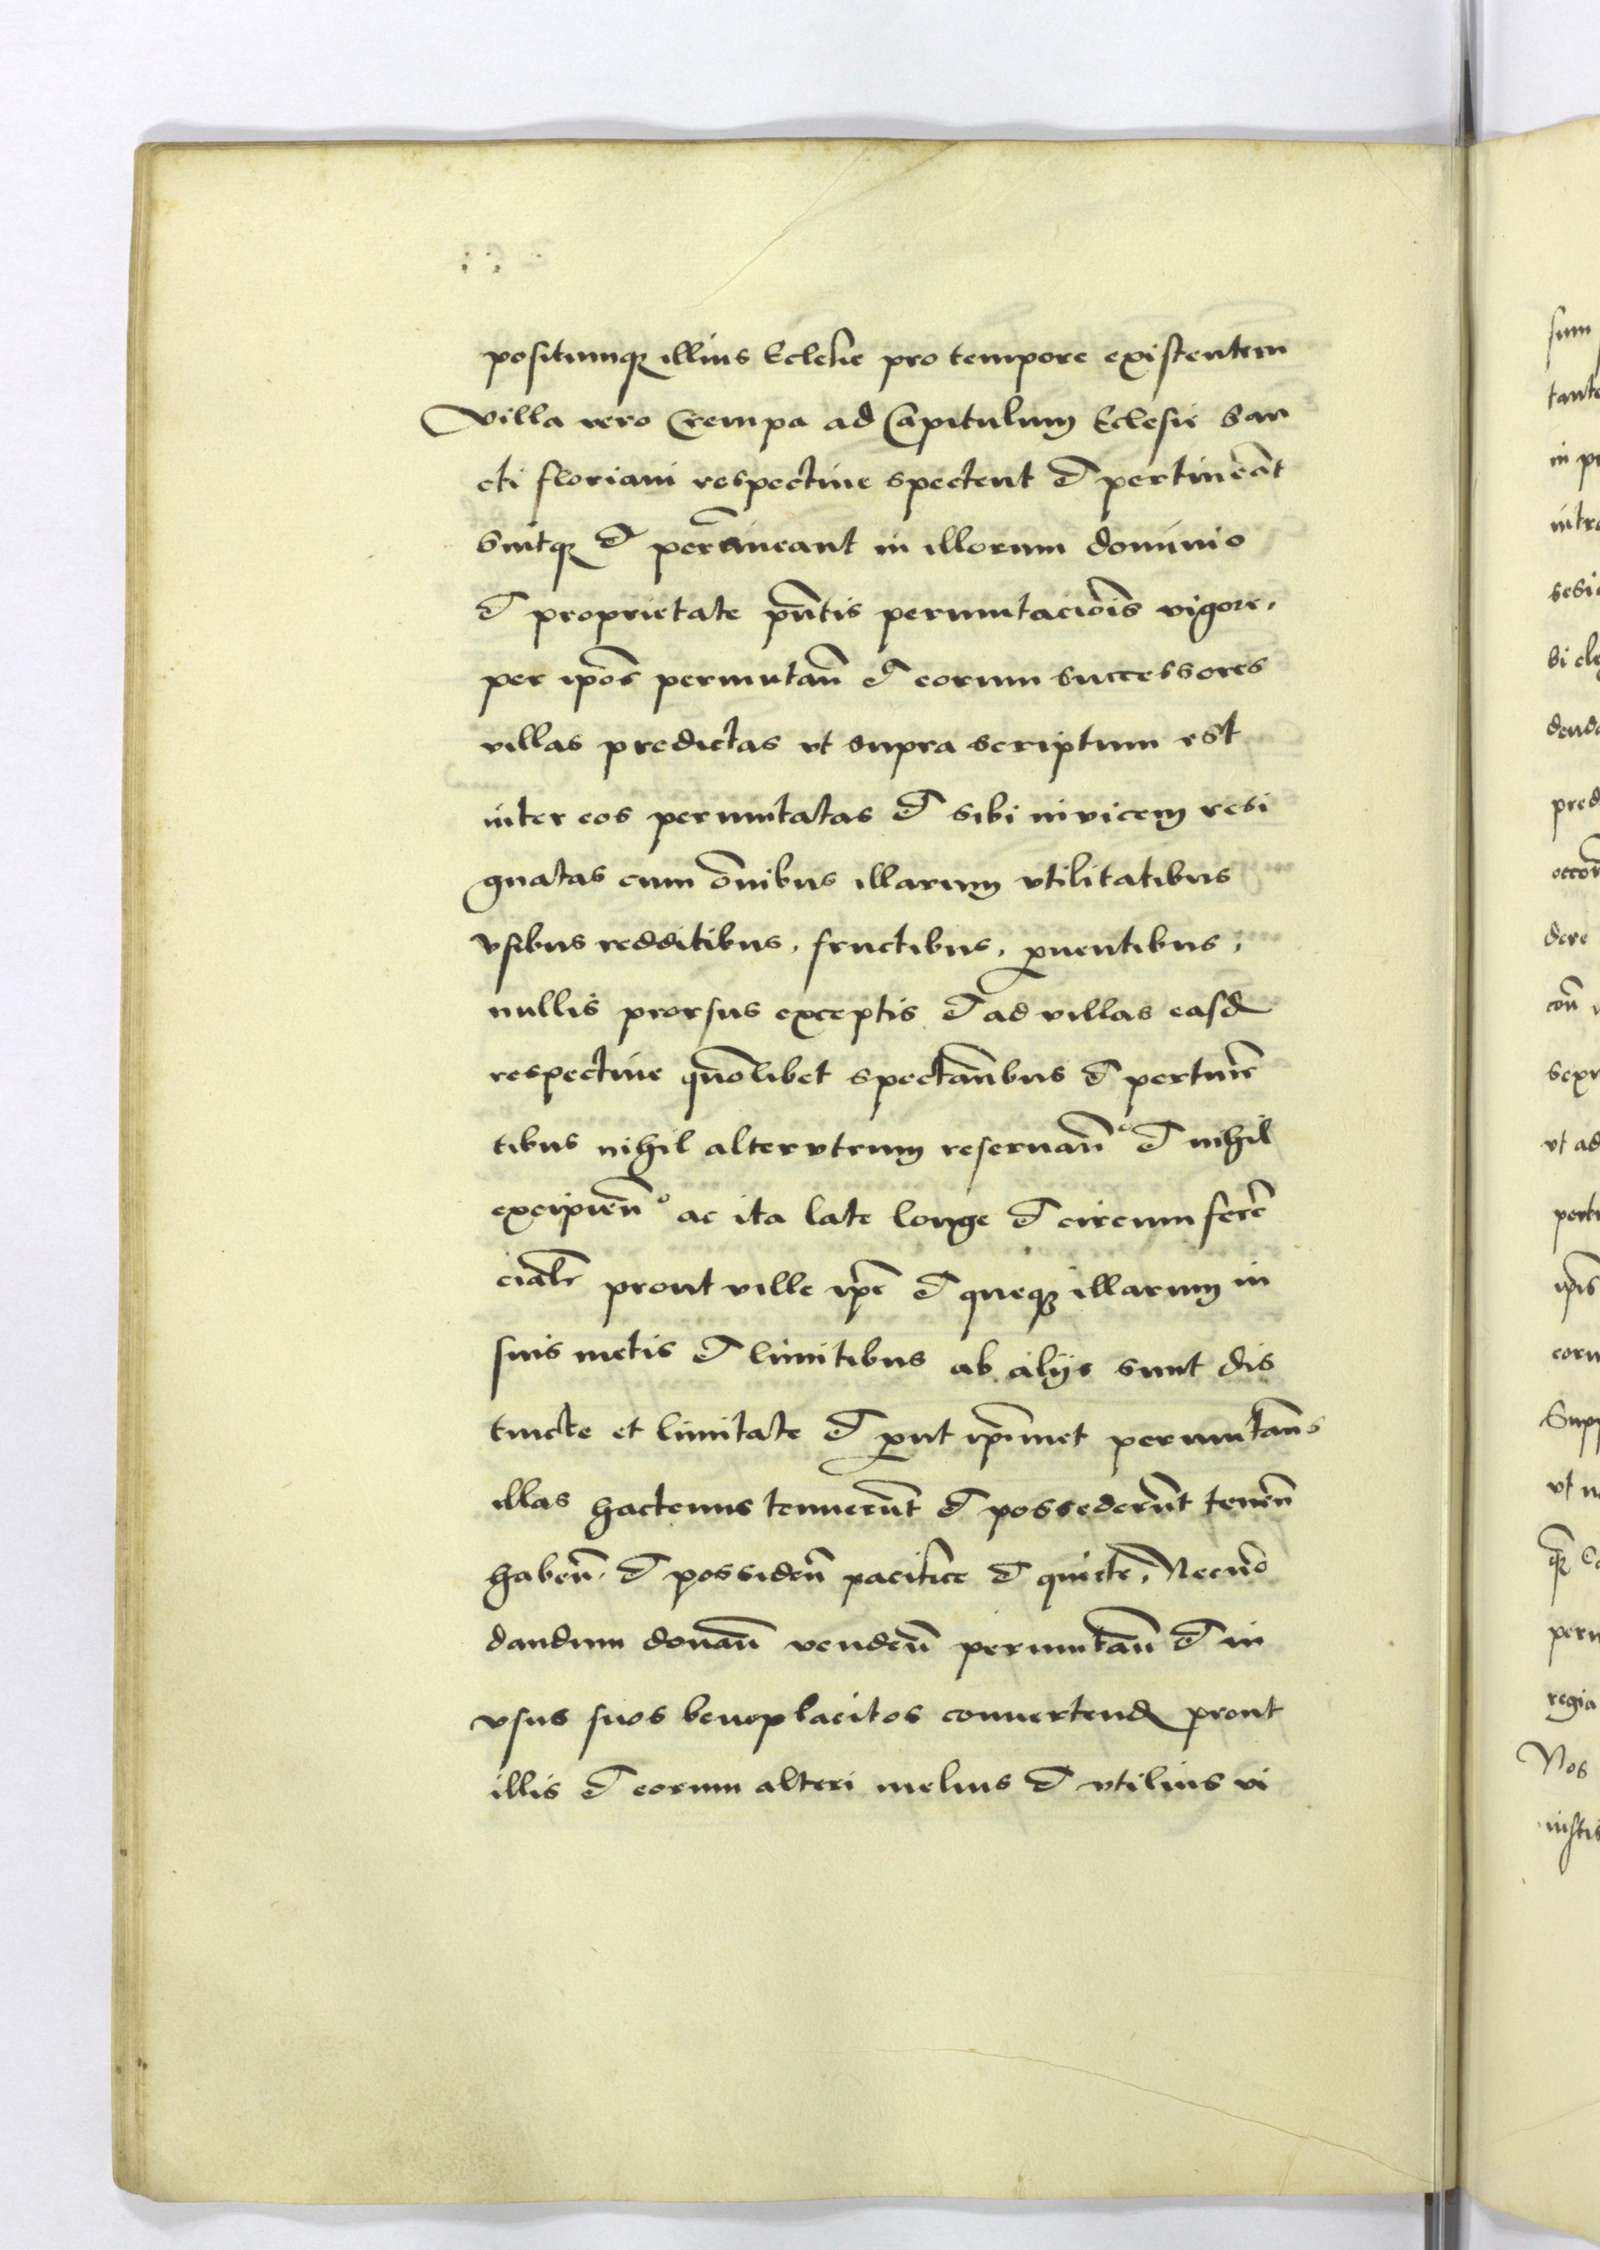 positumq illius Eclesie pro tempore existentem
Villa vero Crempa ad Capitulum Eclesie San
cti floriani respectiue spectent et pertineant
Sintq et permaneant in illorum dominio
et proprietate pntis permutacionis vigore,
per ipos permutan et eorum successores
villas predictas vt supra scriptum est
inter eos permutatas et sibi invicem resi
gnatas cum omnibus illarum vtilitatibus
vsibus redditibus, fructibus, puentibus,
nullis prorsus exceptis et ad villas easd
respectiue quolibet spectanbus et pertinen
tibus nihil altervtrum reseruan et nihil
excipien ac ita late longe et circumferen
cialr prout ville ipe et queq illarum in
suis metis et limitibus ab alijs sunt dis
tincte et limitate et put ipimet permutans
illas hactenus tenuerunt et possederunt tenen
haben. et possiden pacifice et quiete, Necno
dandum donan venden permutan et in
vsus suos beneplacitos conuertend prout
illis et eorum alteri melius et vtilius vi
sum
in
dere
vt ad
Nos